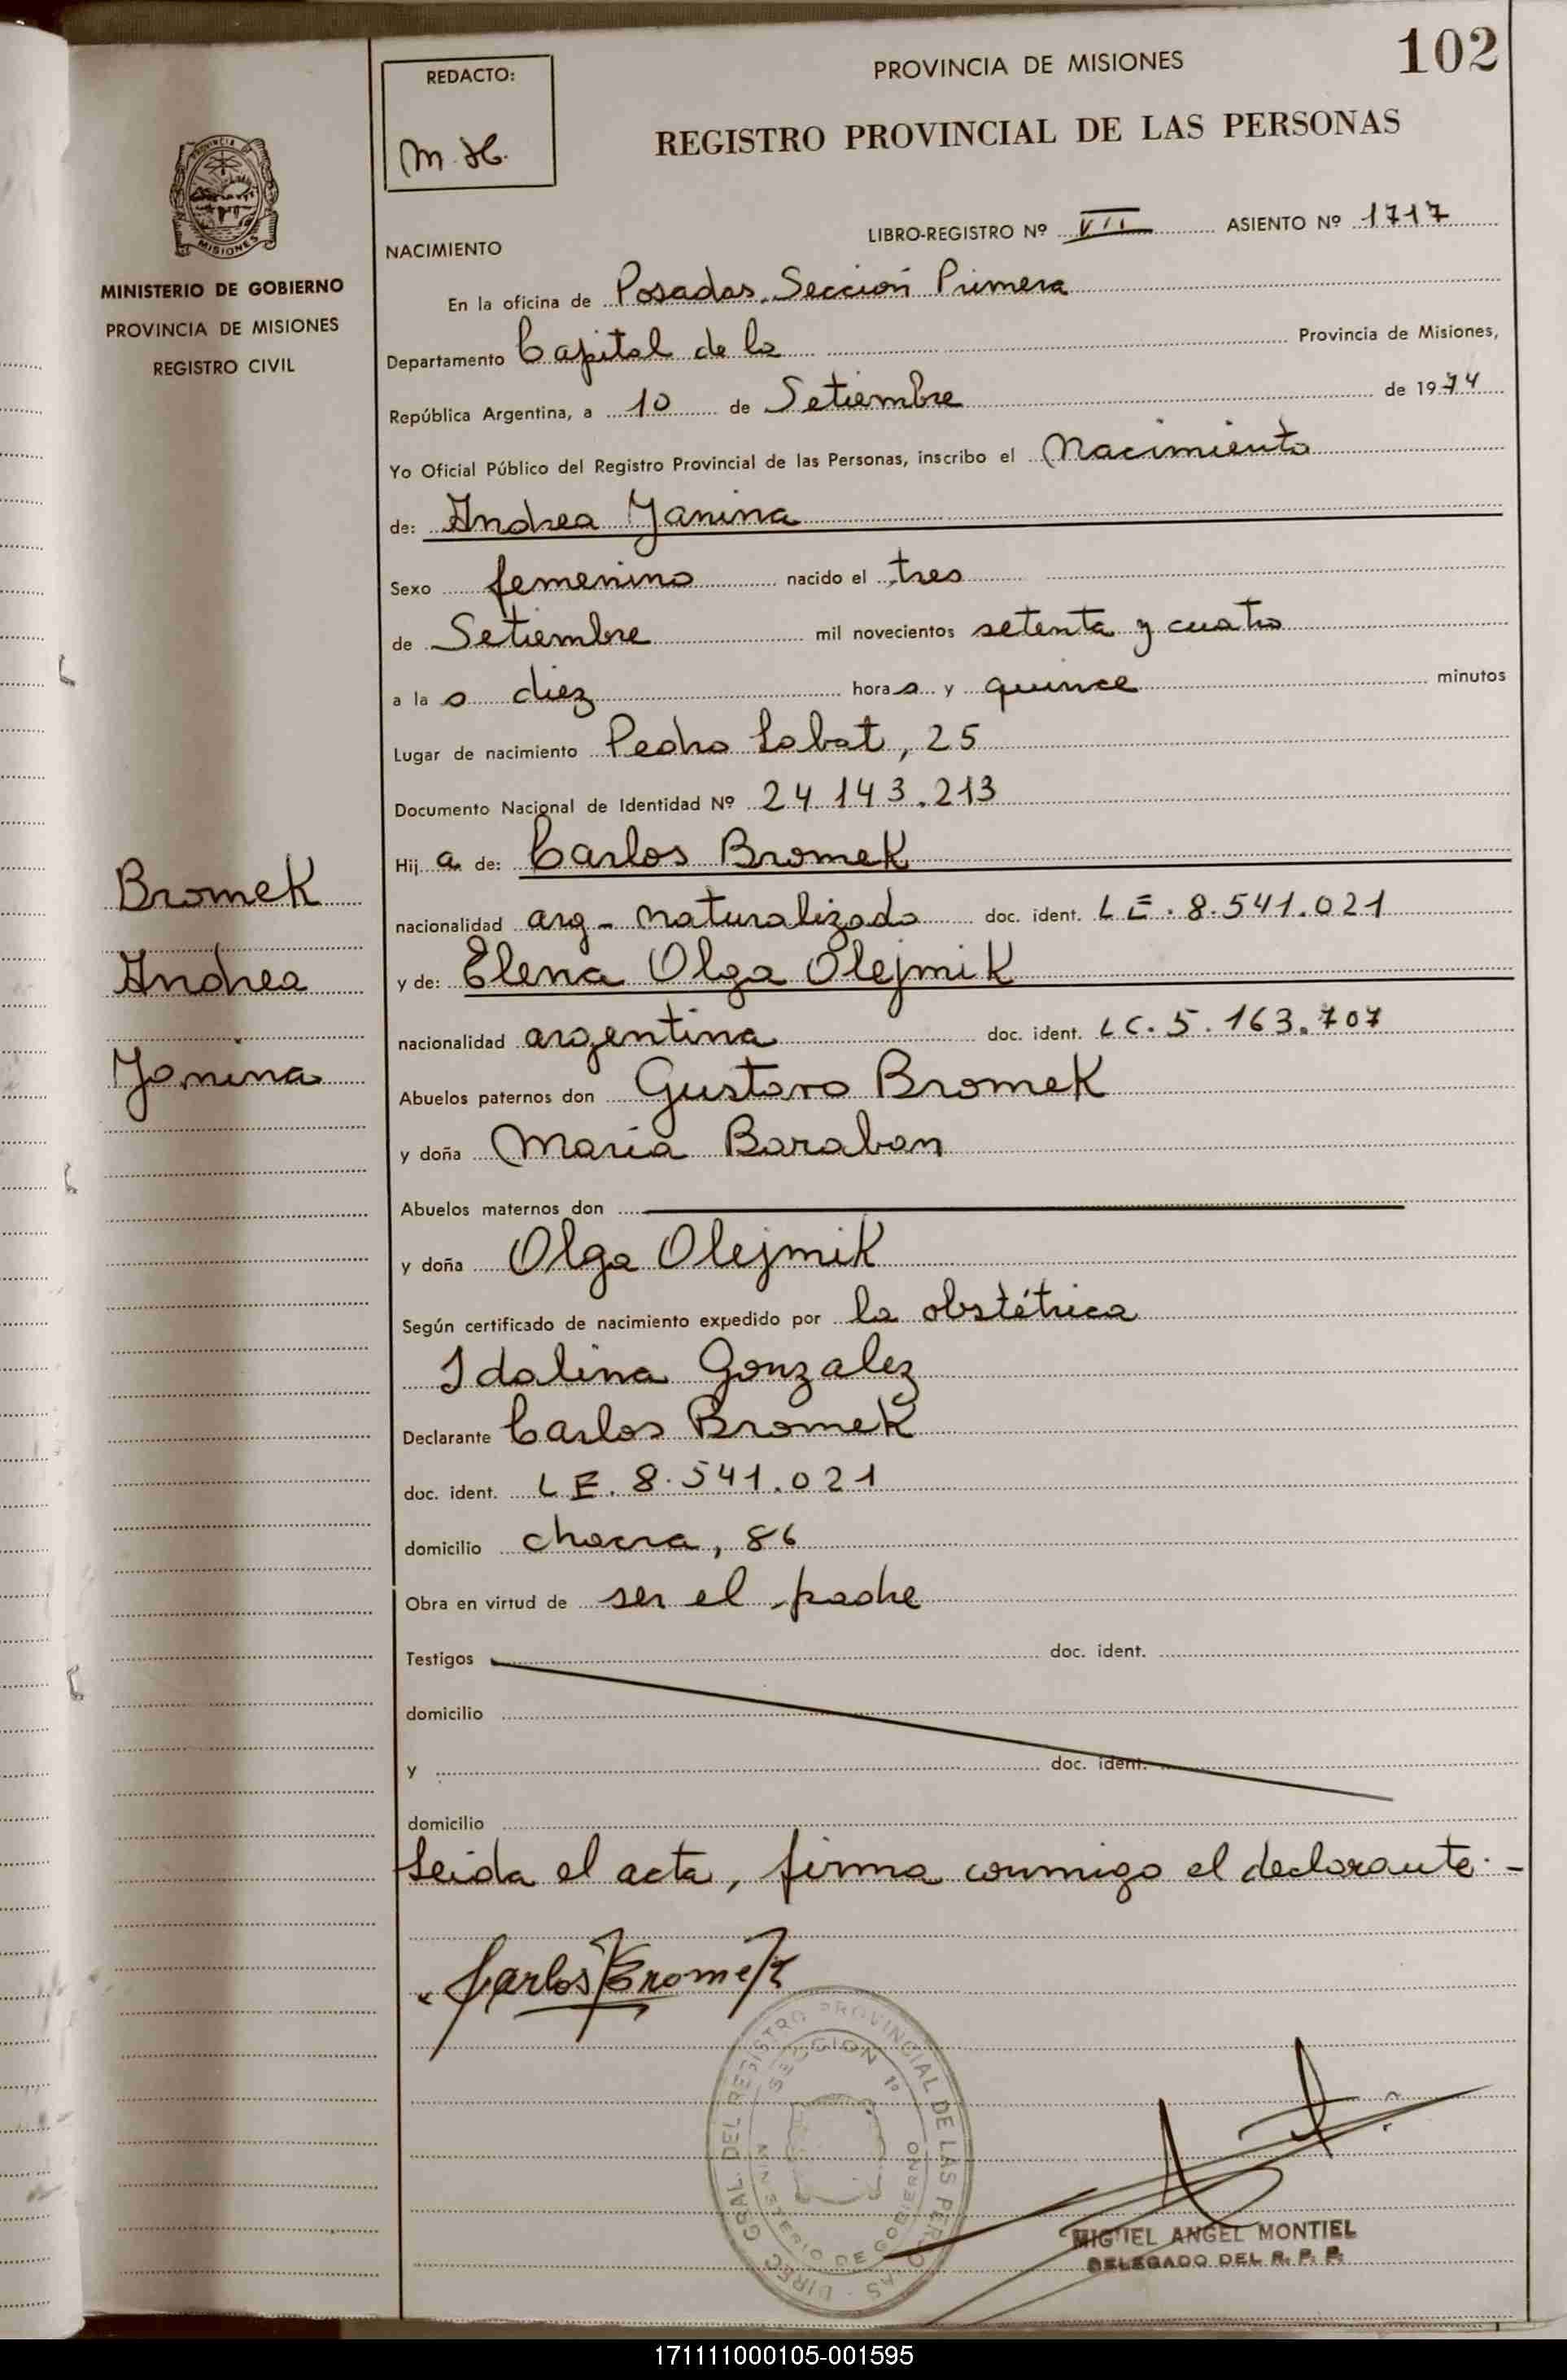 102
REDACTO:
M. H.
PROVINCIA DE MISIONES
REGISTRO PROVINCIAL DE LAS PERSONAS
LIBRO-REGISTRO Nº VII ASIENTO Nº 1717
NACIMIENTO
MISIONES
MINISTERIO DE GOBIERNO
PROVINCIA DE MISIONES
REGISTRO CIVIL
En la oficina de Posadas, Sección Primera
Departamento Capital de la Provincia de Misiones,
República Argentina, a 10 de Setiembre de 1974
Yo Oficial Público del Registro Provincial de las Personas, inscribo el Nacimiento
de: Andrea Yanina
Sexo femenino nacido el tres
de Setiembre mil novecientos setenta y cuatro
a la s diez hora s y quince minutos
Lugar de nacimiento Pedro Labat, 25
Documento Nacional de Identidad Nº 24.143.213
Hij a de: Carlos Bromek
nacionalidad arg- naturalizado doc. ident. L E. 8.541.021
y de: Elena Olga Olejmik
nacionalidad argentina doc. ident. L C. 5.163.707
Abuelos paternos don Gustavo Bromek
y doña María Baraban
Abuelos maternos don
y doña Olga Olejmik
Según certificado de nacimiento expedido por la obstétrica
Idalina Gonzalez
Declarante Carlos Bromek
doc. ident. L E. 8.541.021
domicilio chacra, 86
Obra en virtud de ser el padre
Testigos doc. ident.
domicilio
y doc. ident.
domicilio
Leida el acta, firma conmigo el declarante.-
Bromek
Andrea
Yanina
Carlos Bromek
DIREC. GRAL. DEL REGISTRO PROVINCIAL DE LAS PERSONAS
SECCION 1º
MINISTERIO DE GOBIERNO
MIGUEL ANGEL MONTIEL
DELEGADO DEL R. P. P.
171111000105-001595